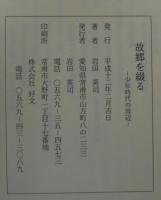 故郷を綴る
―少年時代の周辺―
発行 平成十二年二月吉日
著者 岩田英司
発行者 岩田英司
愛知県常滑市山方町八の二三三
電話 〇五六九―三五―四五七三
印刷所 常滑市大野町一丁目十七番地
株式会社 好文
電話 〇五六九―四三―三〇八九